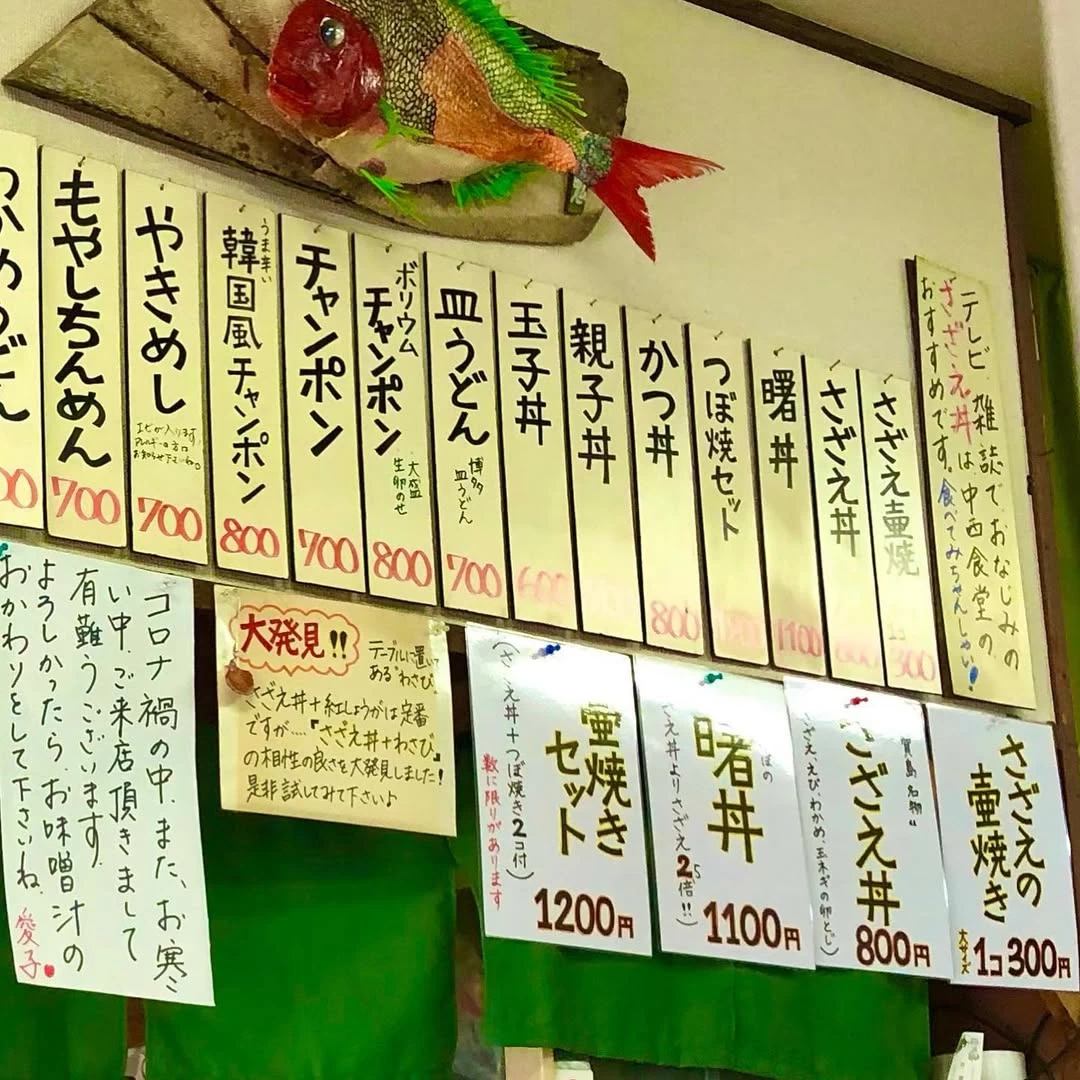 テレビ、雑誌でおなじみの
さざえ丼は中西食堂の
おすすめです。食べてみちゃんしゃい!
さざえ壷焼
1コ
300
さざえ丼
800
曙丼
1100
つぼ焼セット
かつ丼
800
親子丼
玉子丼
600
皿うどん
博多
皿うどん
700
ボリウム
チャンポン
大盛
生卵のせ
800
チャンポン
700
うま辛い
韓国風チャンポン
800
やきめし
エビが入ります
アレルギーの方は
お知らせ下さいね。
700
もやしちんめん
700
わかめうどん
さざえの
壷焼き
大サイズ
1コ300円
賀島名物
さざえ丼
さざえ、えび、わかめ、玉ネギの卵とじ
800円
曙丼
さざえ丼よりさざえ2.5倍!!
1100円
壷焼き
セット
(さざえ丼+つぼ焼き2コ付)
数に限りがあります
1200円
大発見!!
テーブルに置いて
ある"わさび"
さざえ丼+紅しょうがは定番
ですが....『さざえ丼+わさび』
の相性の良さを大発見しました!
是非試してみて下さいよ
コロナ禍の中、また、お寒
い中、ご来店頂きまして
有難うございます。
よろしかったら、お味噌汁の
おかわりをして下さいね。
愛子